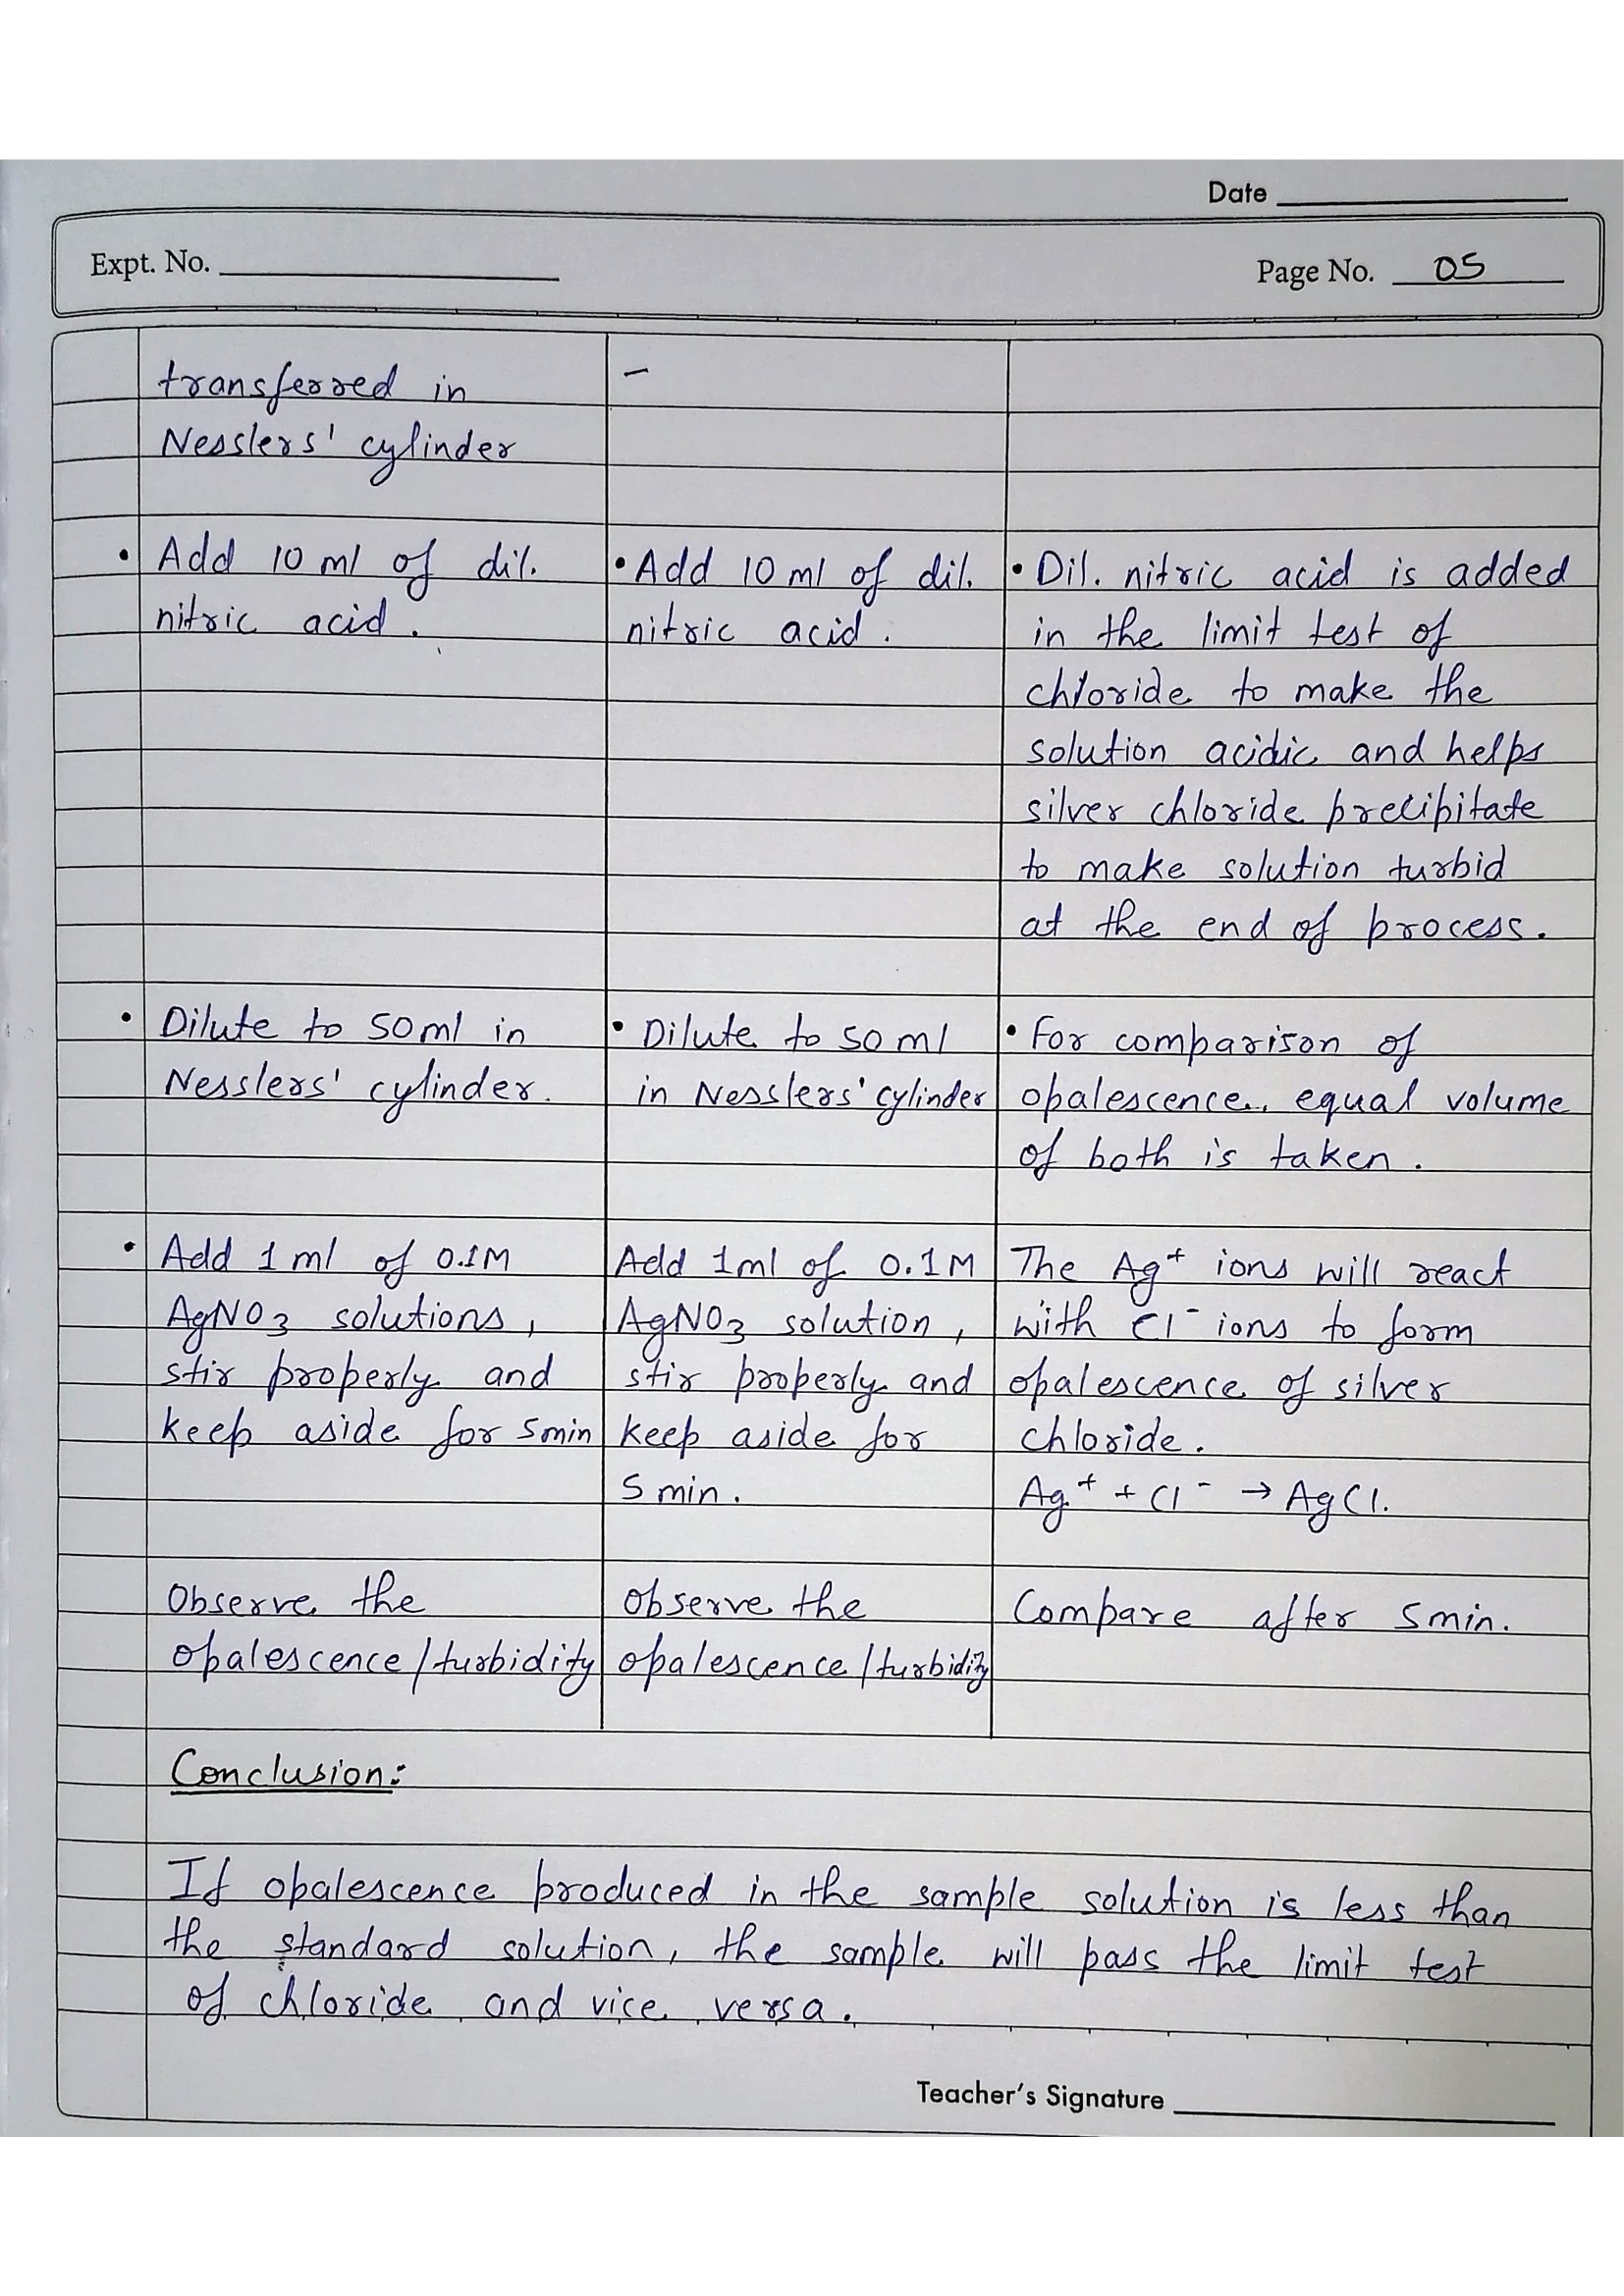 Date
Expt. No.
Page No. 05
transferred in
Nesslers' cylinder
-
• Add 10 ml of dil.
nitric acid.
• Add 10 ml of dil.
nitric acid.
• Dil. nitric acid is added
in the limit test of
chloride to make the
solution acidic and helps
silver chloride precipitate
to make solution turbid
at the end of process.
• Dilute to 50 ml in
Nesslers' cylinder.
• Dilute to 50 ml
in Nesslers' cylinder
• For comparison of
opalescence, equal volume
of both is taken.
• Add 1 ml of 0.1M
AgNO3 solutions,
stir properly and
keep aside for 5min
Add 1ml of 0.1M
AgNO3 solution,
stir properly and
keep aside for
5 min.
The Ag+ ions will react
with Cl- ions to form
opalescence of silver
chloride.
Ag+ + Cl- → AgCl.
Observe the
opalescence/turbidity
Observe the
opalescence/turbidity
Compare after 5min.
Conclusion:
If opalescence produced in the sample solution is less than
the standard solution, the sample will pass the limit test
of chloride and vice versa.
Teacher's Signature